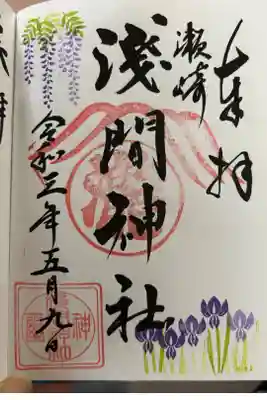 奉拝
瀬崎
浅間神社
令和三年五月九日